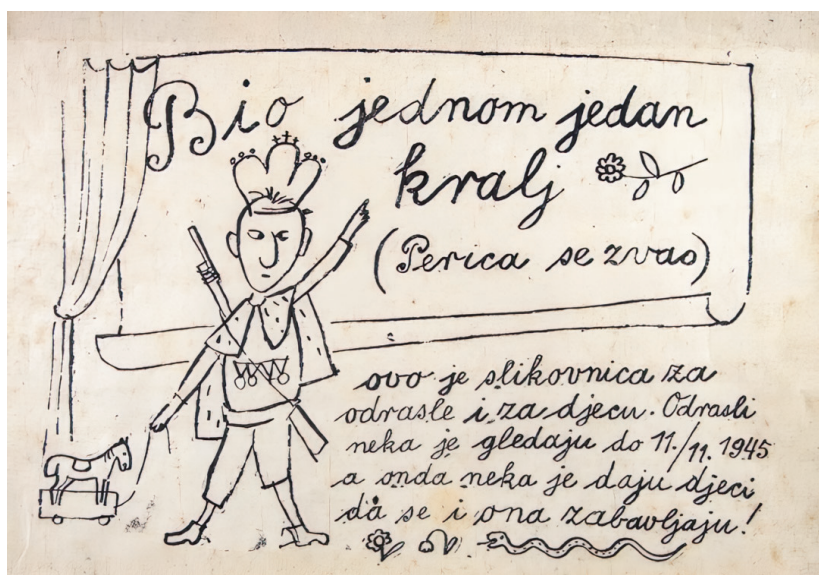 Bio jednom jedan
kralj
(Perica se zvao)
ovo je slikovnica za
odrasle i za djecu. Odrasli
neka je gledaju do 11./11. 1945
a onda neka je daju djeci
da se i ona zabavljaju!